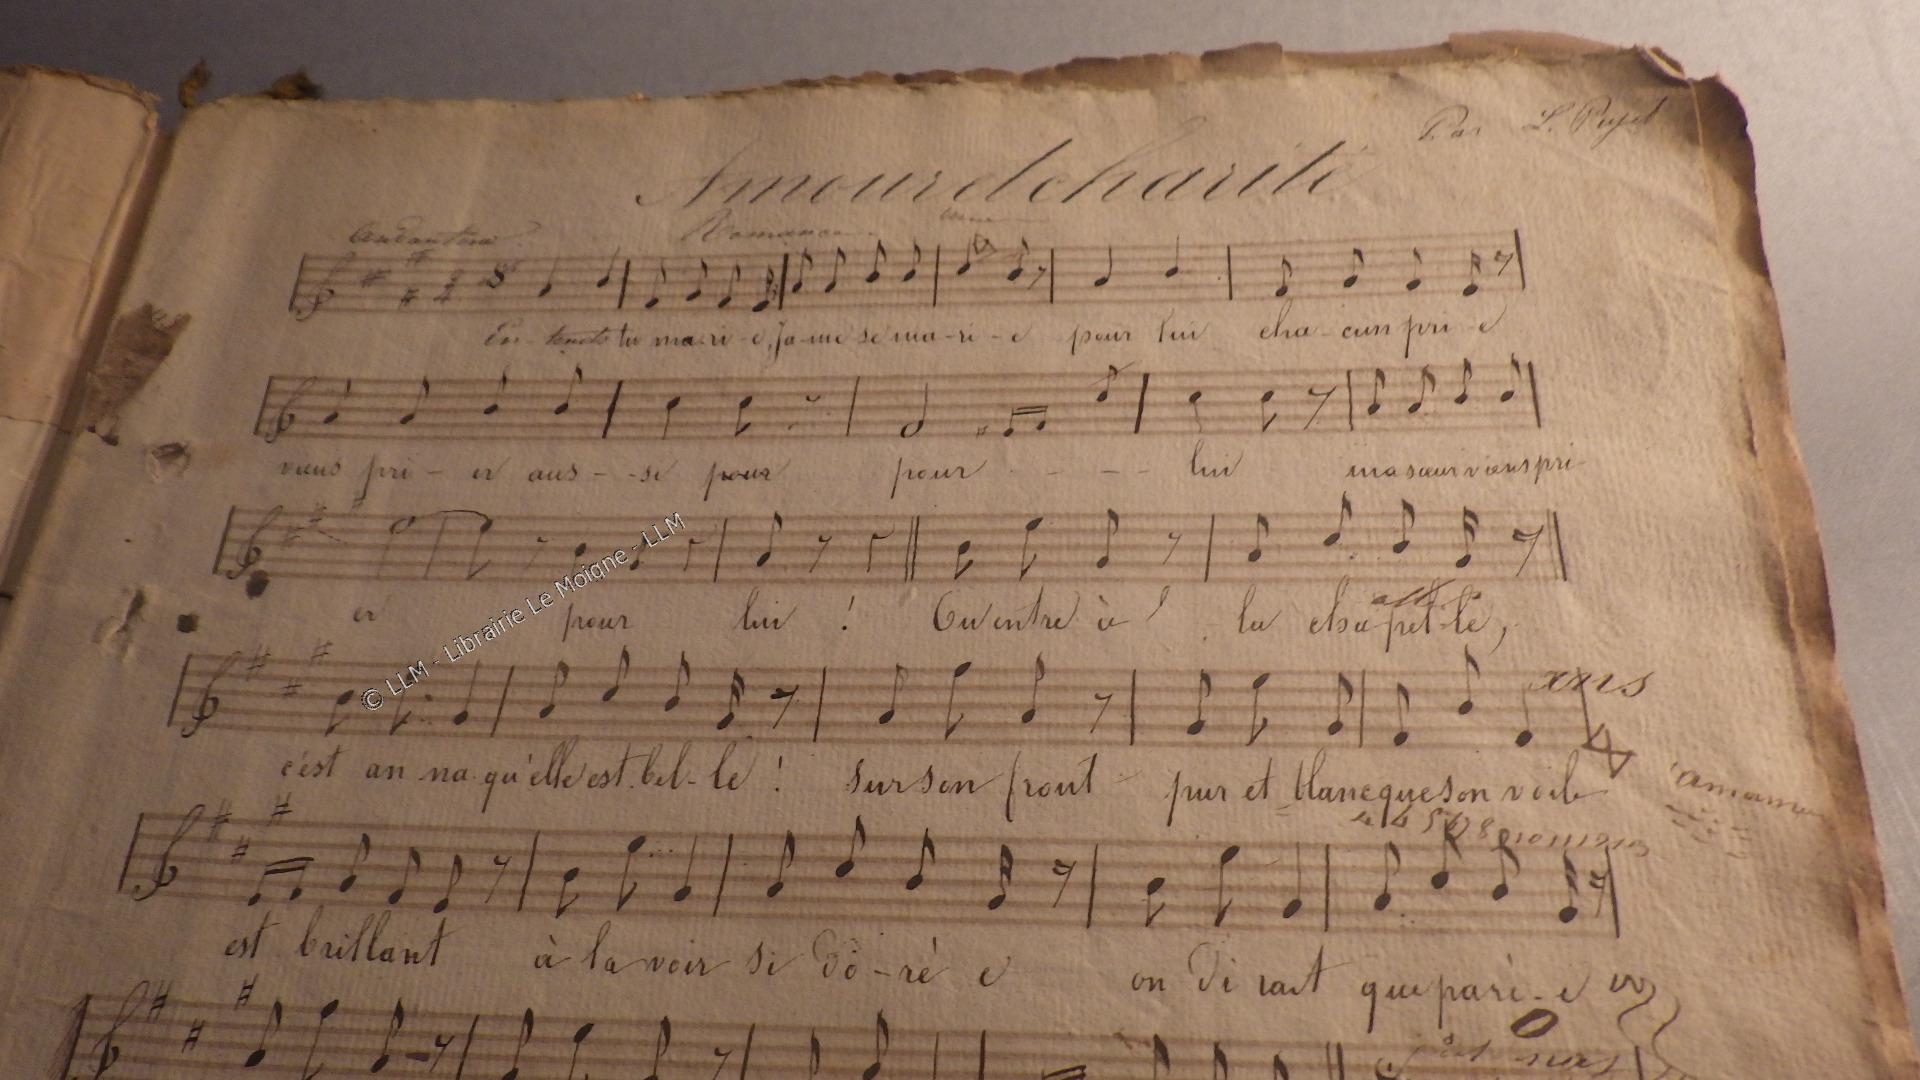 Par L. Puget
Amour et charité
Andantino Romance
En-tends tu ma-ri-e, Ja-me se ma-ri-e pour lui cha-cun pri-e
viens pri-er aus--si pour pour ---- lui ma sœur viens pri-
er pour lui ! On entre à la chapel-le,
c'est an na qu'elle est bel-le ! sur son front pur et blanc que son voile
est brillant à la voir si do-ré e on di rait que paré-e
© LLM - Librairie Le Moigne - LLM